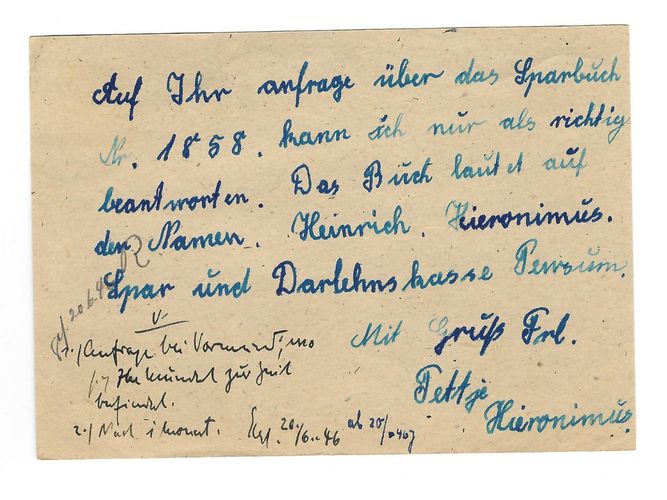 Auf Ihr anfrage über das Sparbuch
Nr. 1858. kann ich nur als richtig
beantworten. Das Buch lautet auf
den Namen. Heinrich. Hieronimus.
Spar und Darlehnskasse Pewsum.
Mit Gruß Frl.
Tettje
Hieronimus.
V.
1./ Anfrage bei Vormund, wo
Mündel zur Zeit
befindet.
2./ Nach 1 Monat. 20/6.46 ab 20/